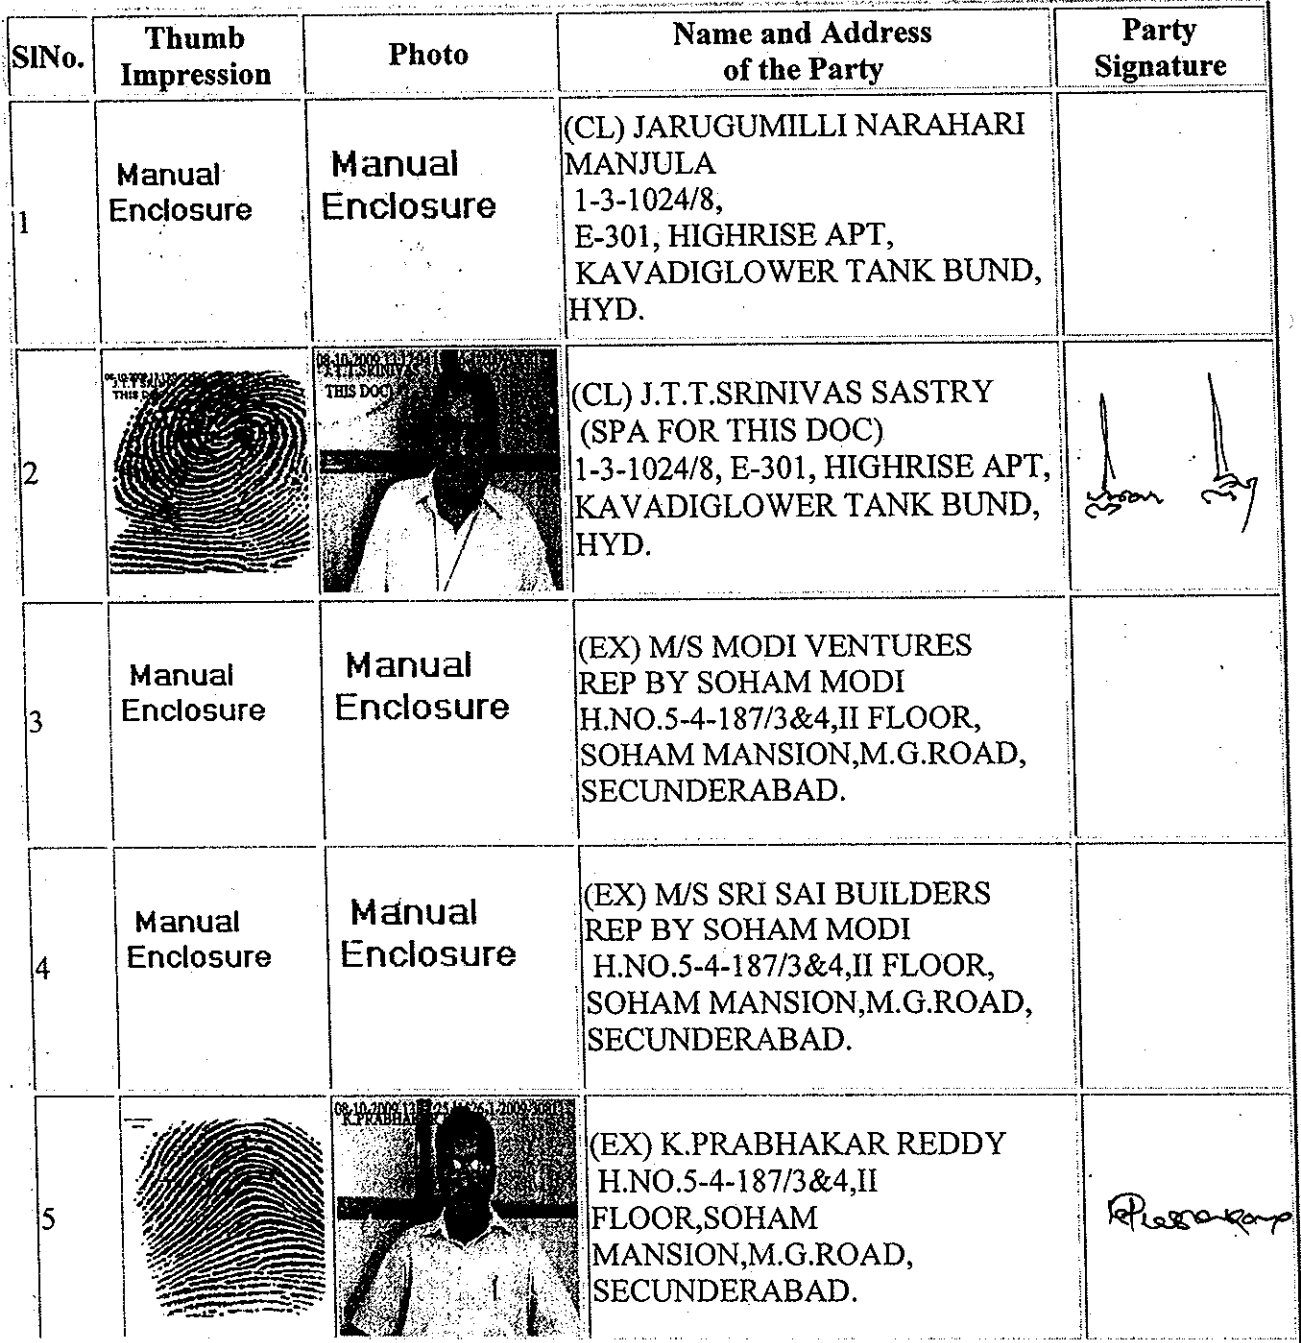 SlNo.
Thumb
Impression
Photo
Name and Address
of the Party
Party
Signature
1
Manual
Enclosure
Manual
Enclosure
(CL) JARUGUMILLI NARAHARI
MANJULA
1-3-1024/8,
E-301, HIGHRISE APT,
KAVADIGLOWER TANK BUND,
HYD.
2
THIS DOC)
(CL) J.T.T.SRINIVAS SASTRY
(SPA FOR THIS DOC)
1-3-1024/8, E-301, HIGHRISE APT,
KAVADIGLOWER TANK BUND,
HYD.
3
Manual
Enclosure
Manual
Enclosure
(EX) M/S MODI VENTURES
REP BY SOHAM MODI
H.NO.5-4-187/3&4,II FLOOR,
SOHAM MANSION,M.G.ROAD,
SECUNDERABAD.
4
Manual
Enclosure
Manual
Enclosure
(EX) M/S SRI SAI BUILDERS
REP BY SOHAM MODI
H.NO.5-4-187/3&4,II FLOOR,
SOHAM MANSION,M.G.ROAD,
SECUNDERABAD.
5
08-10-2009
(EX) K.PRABHAKAR REDDY
H.NO.5-4-187/3&4,II
FLOOR,SOHAM
MANSION,M.G.ROAD,
SECUNDERABAD.